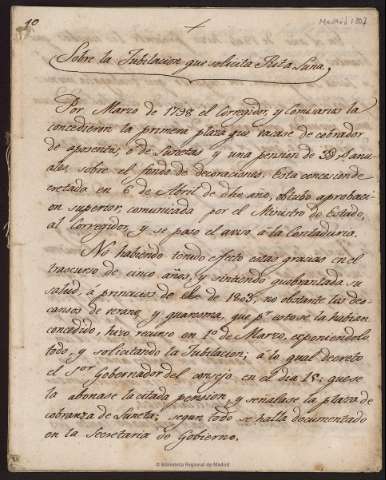 10
Madrid 1807
Sobre la Jubilacion que solicita Rita Luna.
Por Marzo de 1798 el Corregidor, y Comisarios la
concedieron la primera plaza que vacase de cobrador
de aposentos, ó de lunetas y una pension de 3 anu-
ales sobre el fondo de decoraciones. Esta concesion de-
cretada en 6 de Abril de dho año, obtubo aprobaci-
on superior, comunicada por el Ministro de Estado,
al Corregidor, y se paso el aviso á la Contaduria.
No habiendo tenido efecto estas gracias en el
trascurso de cinco años, y sintiendo quebrantada su
salud, á principios de de 1803, no obstante los des-
cansos de verano, y quaresma, que pª esto se la habian
concedido, hizo recurso en 1º de Marzo, exponiendolo
todo, y solicitando la Jubilacion; á lo qual decretó
el Sor Gobernador del consejo en el dia 15, que se
la abonase la citada pension, y señalase la plaza de
cobranza de luneta; segun todo se halla documentado
en la Secretaria de Gobierno.
© Biblioteca Regional de Madrid